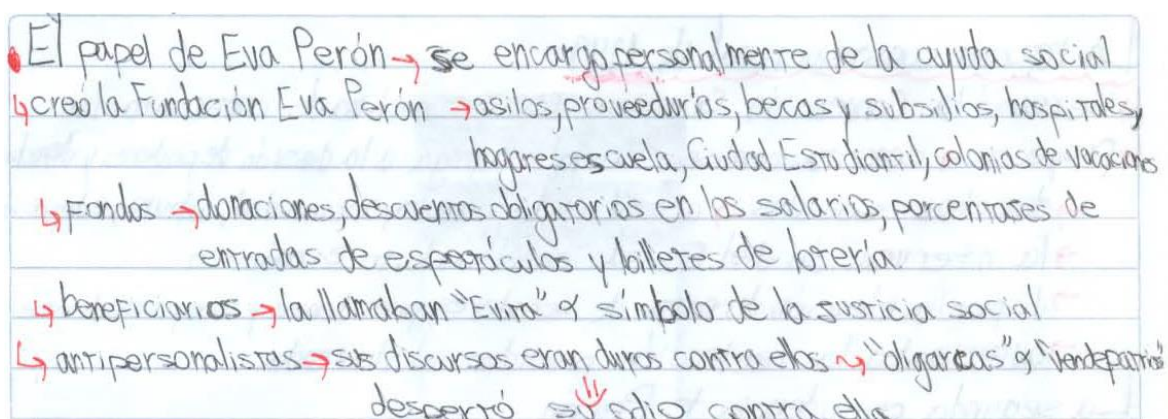 • El papel de Eva Perón → se encargo personalmente de la ayuda social
↳ creó la Fundación Eva Perón → asilos, proveedurías, becas y subsilios, hospitales,
hogares escuela, Ciudad Estudiantil, colonias de vacaciones
↳ Fondos → donaciones, descuentos obligatorios en los salarios, porcentajes de
entradas de espectáculos y billetes de lotería.
↳ beneficiarios → la llamaban "Evita" y símbolo de la justicia social
↳ antipersonalistas → sus discursos eran duros contra ellos ⇝ "oligarcas" y "vendepatrias"
despertó su odio contra ella